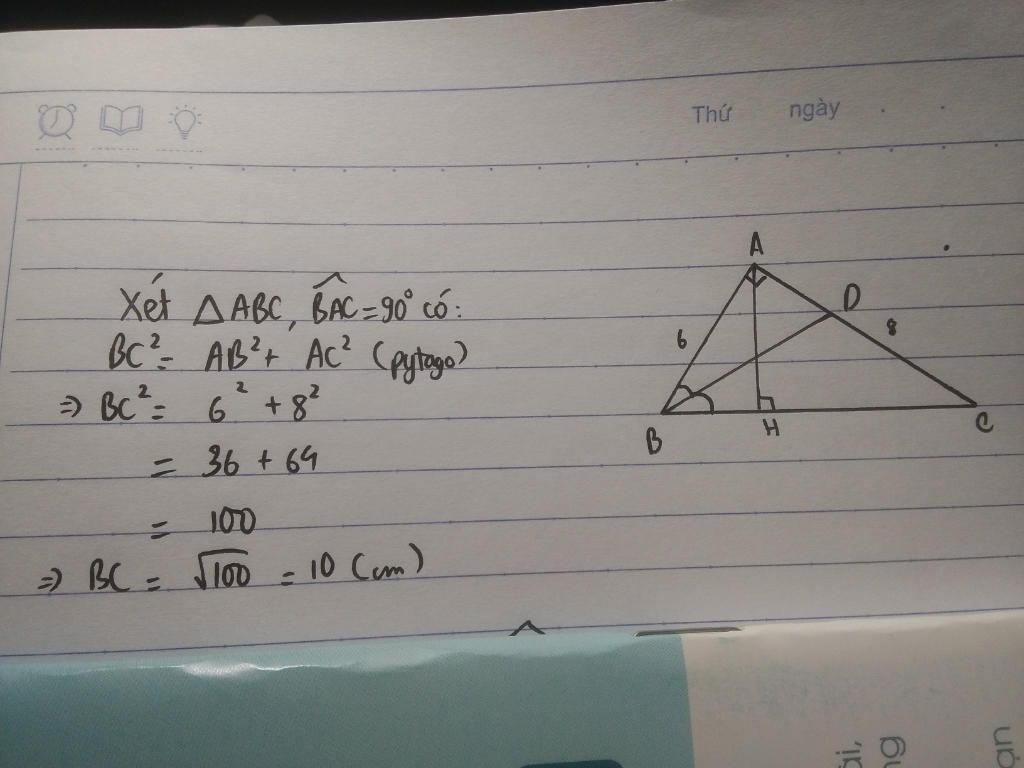 Thứ ngày
Xét △ABC, B̂AC = 90° có:
BC² = AB² + AC² (pytago)
⇒ BC² = 6² + 8²
= 36 + 64
= 100
⇒ BC = √100 = 10 (cm)
A
D
6
8
B
H
C
ải,
ng
ạn